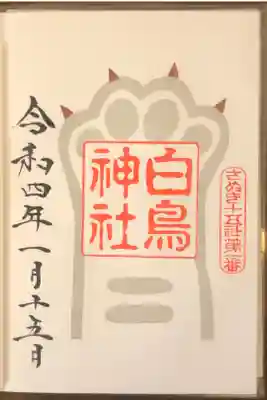 さぬき十五社第一番
白鳥
神社
令和四年一月十五日